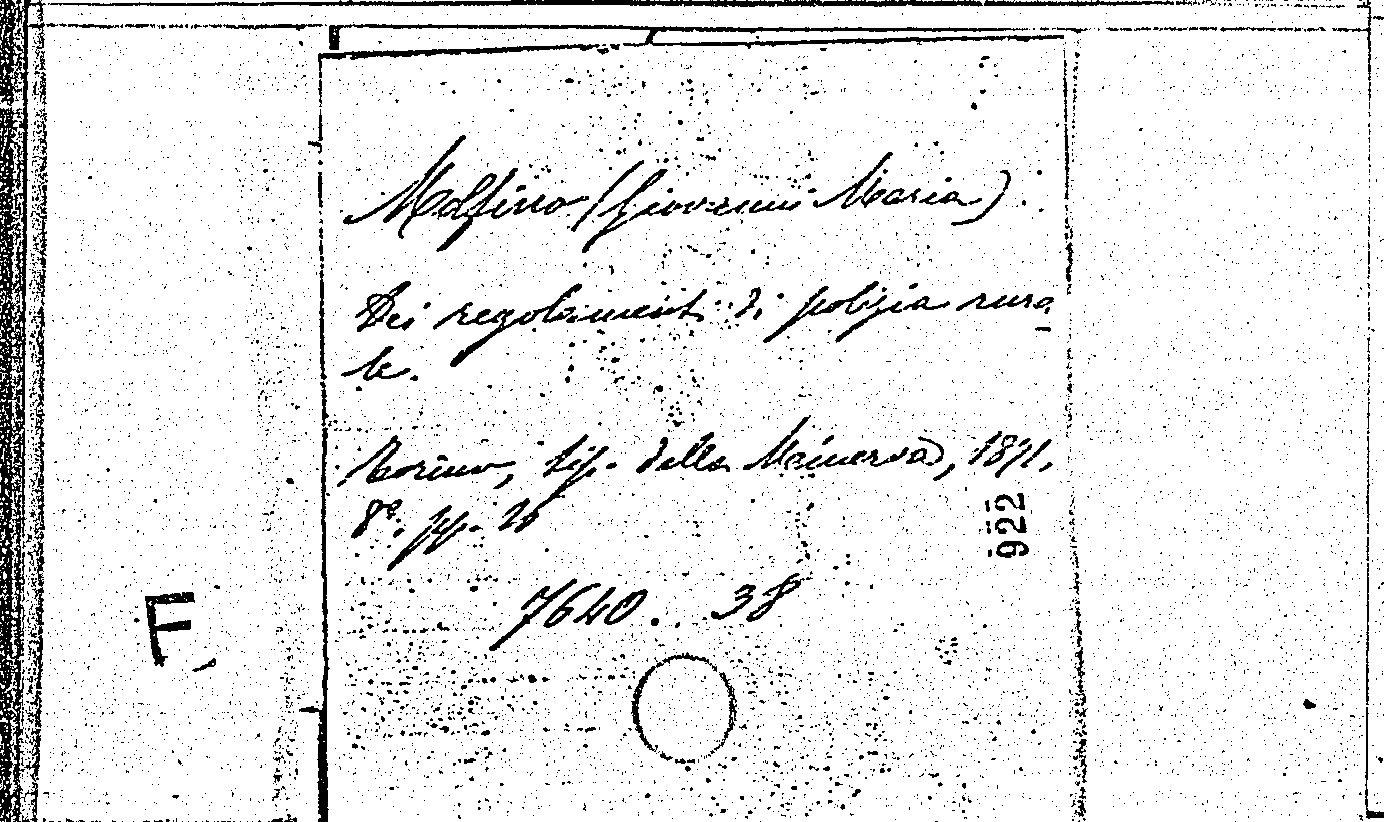 Molfino (Giovanni Maria).
Dei regolamenti di polizia rura
le.
Torino, tip. della Minerva, 1871,
8°. pp. 26
922
7640.. 38
F